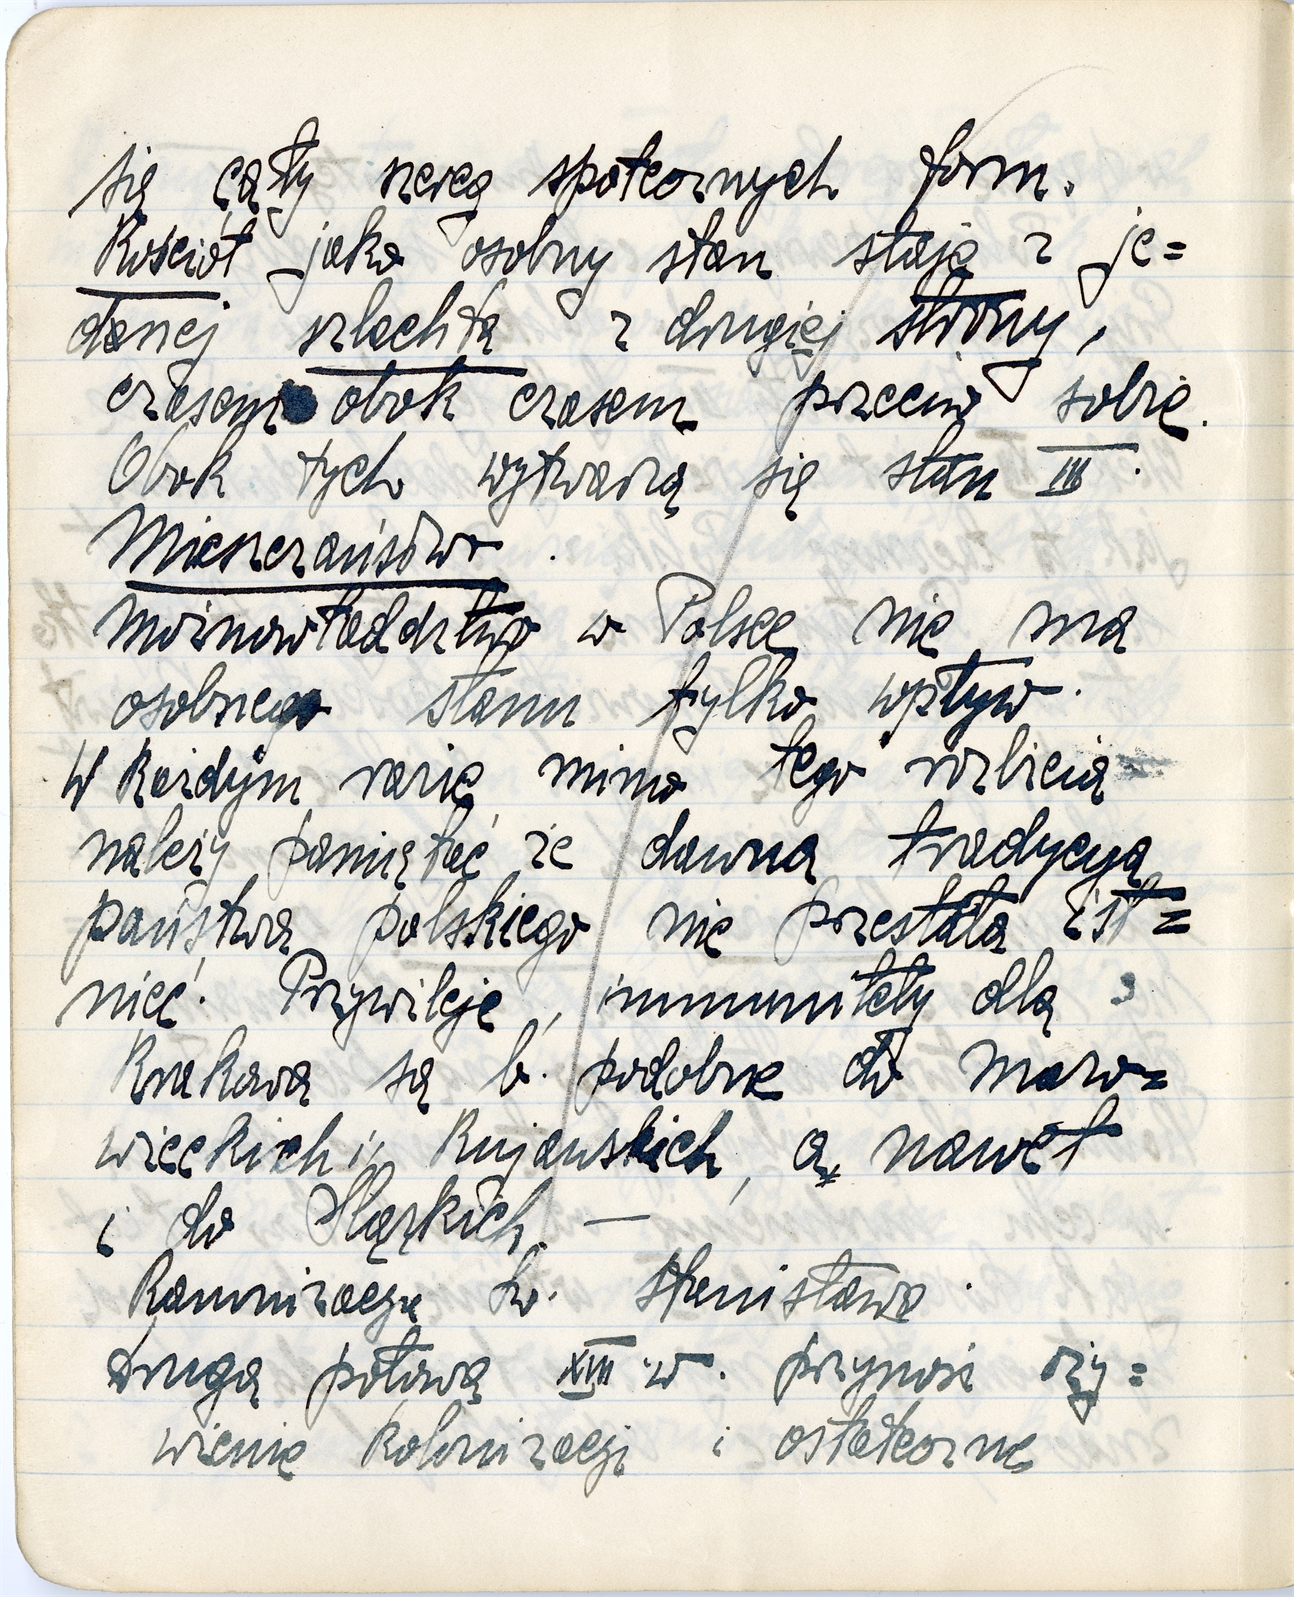 się cały szereg społecznych form.
Kościół jako osobny stan staje z je=
dnej szlachta z drugiej strony,
czasem obok czasem przeciw sobie.
Obok tych wytwarza się stan III.
Mieszczaństwo.
Możnowładdztwo w Polsce nie ma
osobnego stanu tylko wpływ.
W każdym razie mimo tego rozbicia
należy pamiętać że dawna tradycya
państwa polskiego nie przestała ist=
nieć. Przywileje, immunitety dla
Krakowa są b. podobne do mazo=
wieckich i Kujawskich, a nawet
i do Ślązkich. —
Kanonizacya św. Stanisława.
Druga połowa XIII w. przynosi oży=
wienie kolonizacji i ostateczne